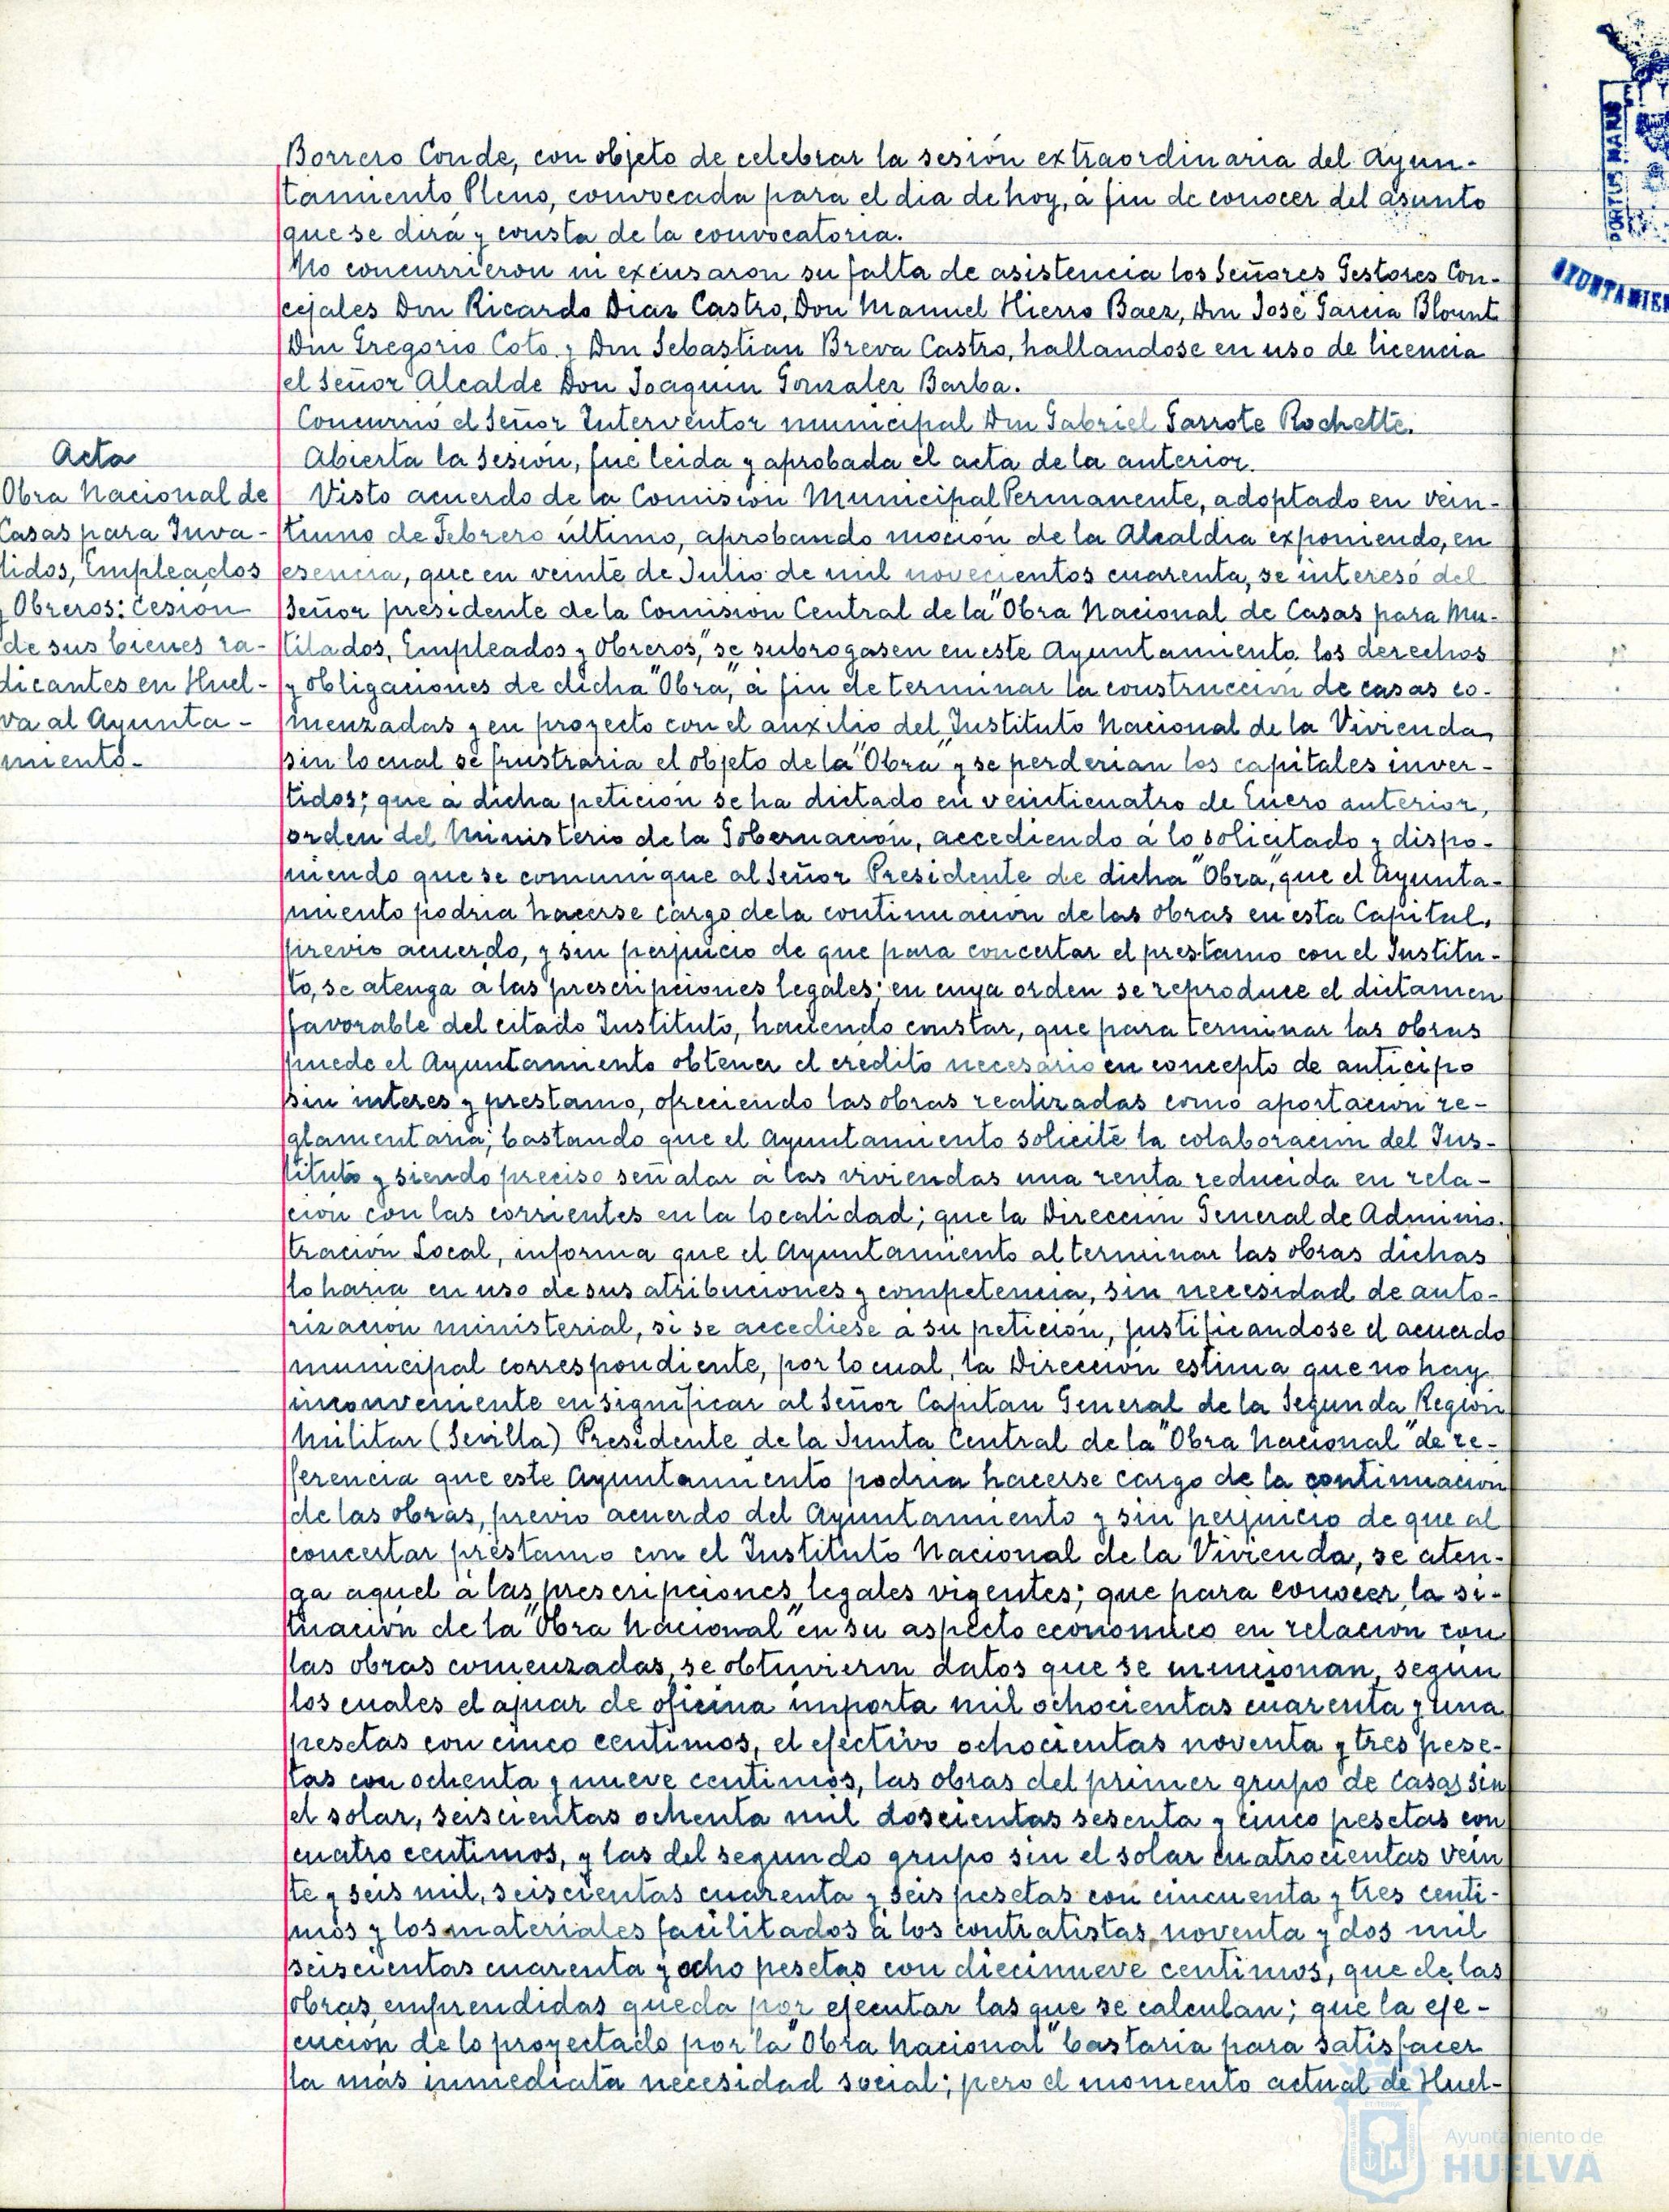 Borrero Conde, con objeto de celebrar la sesión extraordinaria del Ayun-
tamiento Pleno, convocada para el dia de hoy, á fin de conocer del asunto
que se dirá y consta de la convocatoria.
No concurrieron ni excusaron su falta de asistencia los Señores Gestores Con-
cejales Don Ricardo Diaz Castro, Don Manuel Hierro Baez, Don José Garcia Blount
Don Gregorio Coto y Don Sebastian Breva Castro, hallandose en uso de licencia
el Señor Alcalde Don Joaquin Gonzalez Barba.
Concurrió el Señor Interventor municipal Don Gabriel Garrote Rochette.
Acta
Abierta la sesión, fue leida y aprobada el acta de la anterior.
Obra Nacional de
Casas para Inva-
lidos, Empleados
y Obreros: Cesión
de sus bienes ra-
dicantes en Huel-
va al Ayunta-
miento.-
Visto acuerdo de la Comisión Municipal Permanente, adoptado en vein-
tiuno de Febrero último, aprobando moción de la Alcaldia exponiendo, en
esencia, que en veinte de Julio de mil novecientos cuarenta, se interesó del
Señor presidente de la Comisión Central de la "Obra Nacional de Casas para Mu-
tilados, Empleados y Obreros," se subrogasen en este Ayuntamiento los derechos
y obligaciones de dicha "Obra," á fin de terminar la construcción de casas co-
menzadas y en proyecto con el auxilio del Instituto Nacional de la Vivienda,
sin lo cual se frustraria el objeto de la "Obra" y se perderian los capitales inver-
tidos; que á dicha petición se ha dictado en veinticuatro de Enero anterior,
orden del Ministerio de la Gobernación, accediendo á lo solicitado y dispo-
niendo que se comunique al Señor Presidente de dicha "Obra," que el Ayunta-
miento podria hacerse cargo de la continuación de las obras en esta Capital,
previo acuerdo, y sin perjuicio de que para concertar el prestamo con el Institu-
to, se atenga á las prescripciones legales; en cuya orden se reproduce el dictamen
favorable del citado Instituto, haciendo constar, que para terminar las obras
puede el Ayuntamiento obtener el credito necesario en concepto de anticipo
sin interes y prestamo, ofreciendo las obras realizadas como aportación re-
glamentaria; bastando que el Ayuntamiento solicite la colaboración del Ins-
tituto y siendo preciso señalar á las viviendas una renta reducida en rela-
ción con las corrientes en la localidad; que la Dirección General de Adminis-
tración Local, informa que el Ayuntamiento al terminar las obras dichas
lo haria en uso de sus atribuciones y competencia, sin necesidad de auto-
rización ministerial, si se accediese á su petición, justificandose el acuerdo
municipal correspondiente, por lo cual, la Dirección estima que no hay
inconveniente en significar al Señor Capitan General de la Segunda Región
Militar (Sevilla) Presidente de la Junta Central de la "Obra Nacional" de re-
ferencia que este Ayuntamiento podria hacerse cargo de la continuación
de las obras, previo acuerdo del Ayuntamiento y sin perjuicio de que al
concertar préstamo con el Instituto Nacional de la Vivienda, se aten-
ga aquel á las prescripciones legales vigentes; que para conocer la si-
tuación de la "Obra Nacional" en su aspecto economico en relación con
las obras comenzadas, se obtuvieron datos que se mencionan, según
los cuales el ajuar de oficina importa mil ochocientas cuarenta y una
pesetas con cinco centimos, el efectivo ochocientas noventa y tres pese-
tas con ochenta y nueve centimos, las obras del primer grupo de casas sin
el solar, seiscientas ochenta mil doscientas sesenta y cinco pesetas con
cuatro centimos, y las del segundo grupo sin el solar cuatrocientas vein
te y seis mil, seiscientas cuarenta y seis pesetas con cincuenta y tres centi-
mos y los materiales facilitados á los contratistas noventa y dos mil
seiscientas cuarenta y ocho pesetas con diecinueve centimos, que de las
obras emprendidas queda por ejecutar las que se calculan; que la eje-
cución de lo proyectado por la "Obra Nacional" bastaria para satisfacer
la más inmediata necesidad social; pero el momento actual de Huel-
Ayuntamiento de
HUELVA